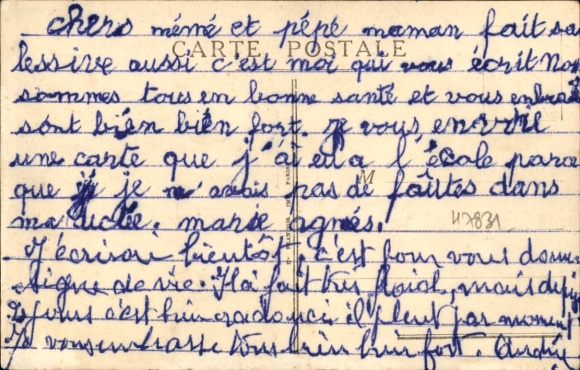 chers mémé et pépé maman fait sa
CARTE POSTALE
lessive aussi c'est moi qui vous écrit Nous
sommes tous en bonne santé et vous
sont bien bien fort. je vous envoie
une carte que j'ai eu a l'école parce
que je n'avais pas de fautes dans
ma dictée. marie agnés.
J'écrirai bientôt, c'est pour vous donner
signe de vie. Il a fait très froid, mais depuis
jours c'est bien radouci il pleut par moment
Je vous embrasse tous bien bien fort. Andrée
47831